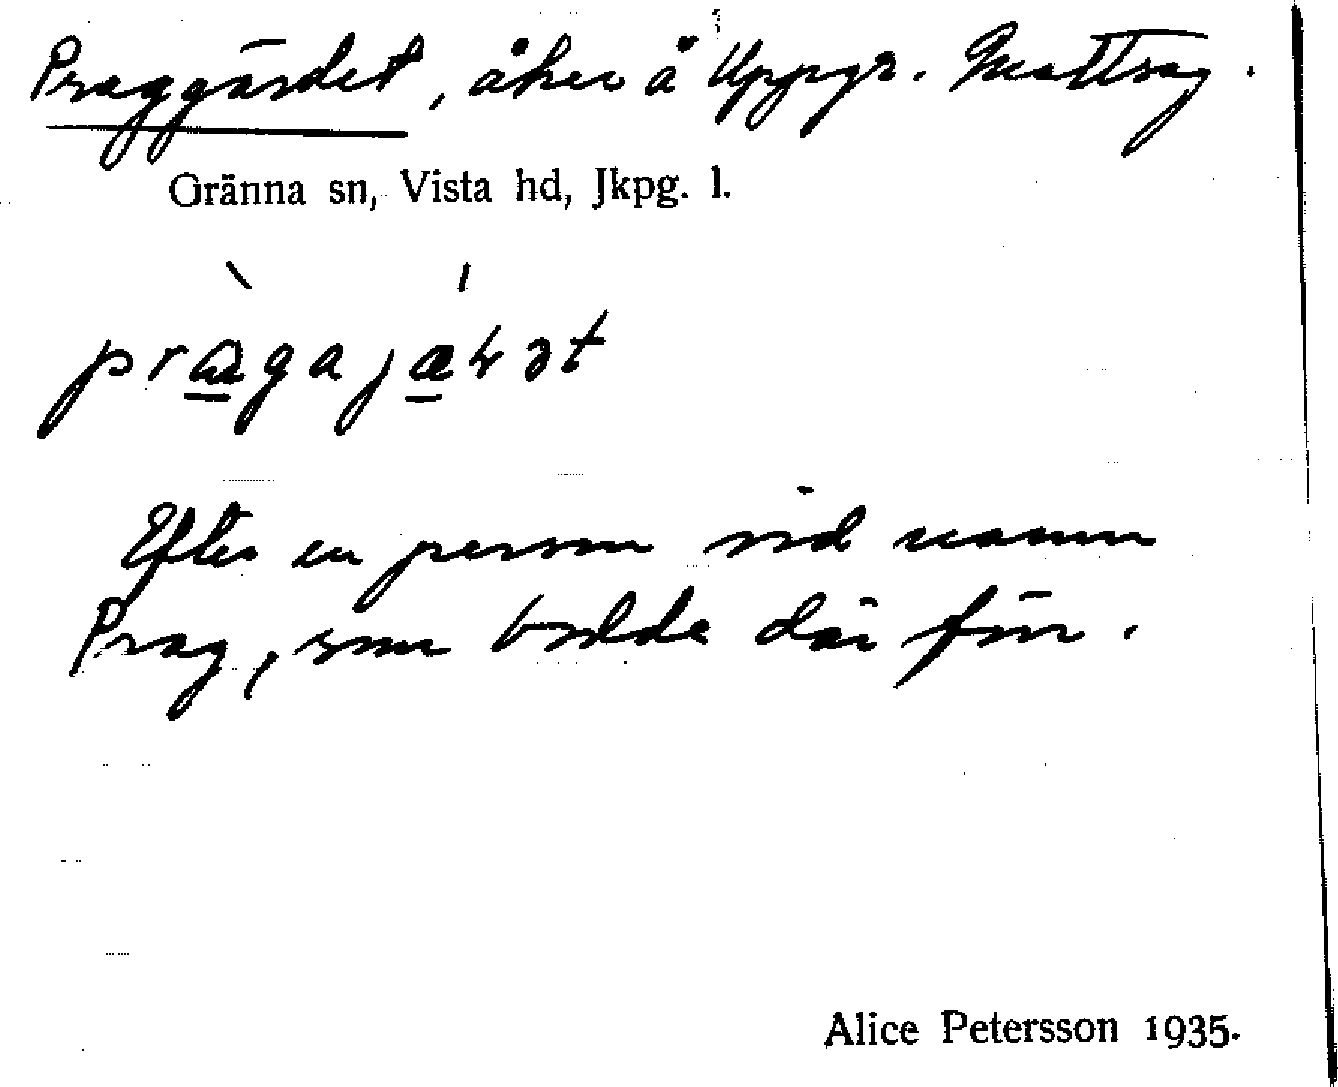 Praggärdet, åker å Uppgr. Mattsag.
Gränna sn, Vista hd, Jkpg. l.
Efter en person vid namn
Prag, som bodde där förr.
Alice Petersson 1935.